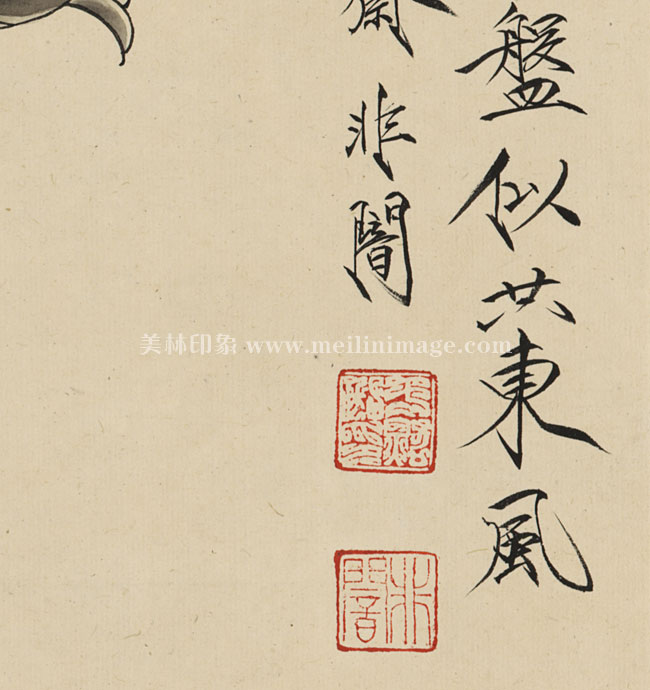 盤似共東風
齋非闇
美林印象 www.meilinimage.com